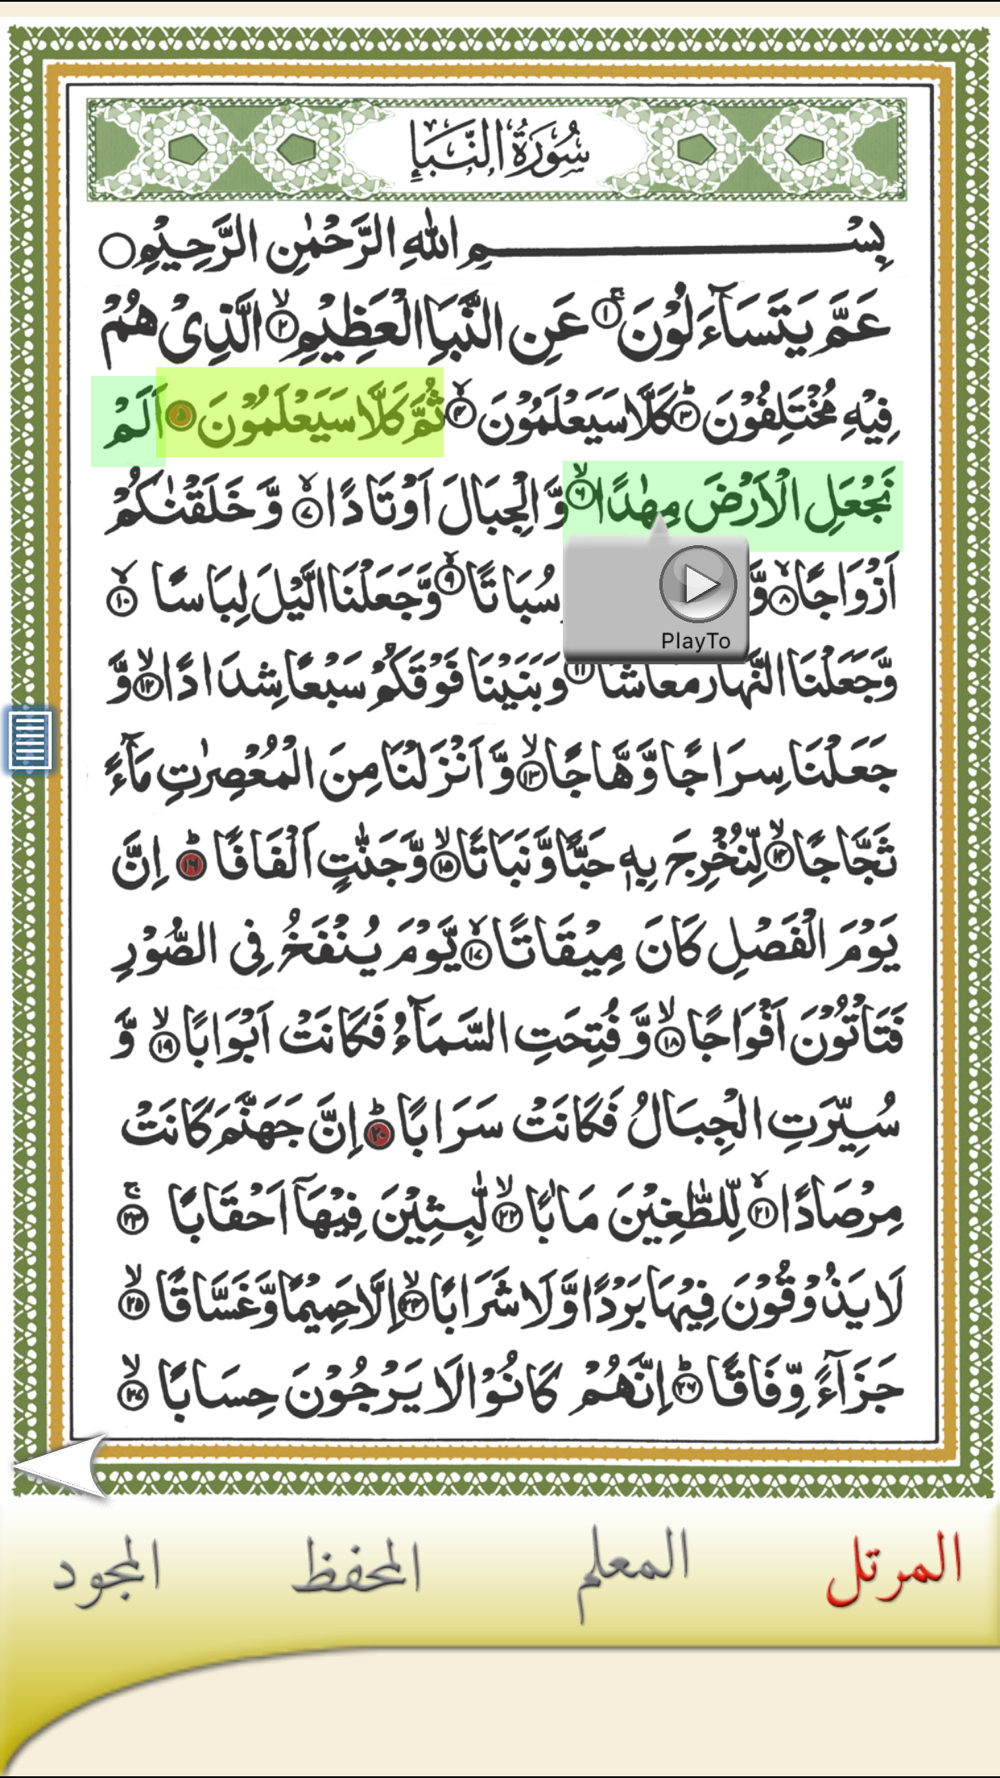 سُوْرَةُ النَّبَاِ
بِسْمِ اللّٰهِ الرَّحْمٰنِ الرَّحِيْمِ
عَمَّ يَتَسَآءَلُوْنَ ۚ﴿۱﴾ عَنِ النَّبَاِ الْعَظِيْمِ ۙ﴿۲﴾ الَّذِىْ هُمْ
فِيْهِ مُخْتَلِفُوْنَ ؕ﴿۳﴾ كَلَّا سَيَعْلَمُوْنَ ۙ﴿۴﴾ ثُمَّ كَلَّا سَيَعْلَمُوْنَ ﴿۵﴾ اَلَمْ
نَجْعَلِ الْاَرْضَ مِهٰدًا ۙ﴿۶﴾ وَّالْجِبَالَ اَوْتَادًا ۙ﴿۷﴾ وَّخَلَقْنٰكُمْ
اَزْوَاجًا ۙ﴿۸﴾ وَّ سُبَاتًا ۙ﴿۹﴾ وَّجَعَلْنَا الَّيْلَ لِبَاسًا ۙ﴿۱۰﴾
PlayTo
وَّجَعَلْنَا النَّهَارَ مَعَاشًا ﴿۱۱﴾ وَبَنَيْنَا فَوْقَكُمْ سَبْعًا شِدَادًا ۙ﴿۱۲﴾ وَّ
جَعَلْنَا سِرَاجًا وَّهَّاجًا ۙ﴿۱۳﴾ وَّاَنْزَلْنَا مِنَ الْمُعْصِرٰتِ مَآءً
ثَجَّاجًا ۙ﴿۱۴﴾ لِّنُخْرِجَ بِهٖ حَبًّا وَّنَبَاتًا ۙ﴿۱۵﴾ وَّجَنّٰتٍ اَلْفَافًا ؕ﴿۱۶﴾ اِنَّ
يَوْمَ الْفَصْلِ كَانَ مِيْقَاتًا ۙ﴿۱۷﴾ يَّوْمَ يُنْفَخُ فِى الصُّوْرِ
فَتَاْتُوْنَ اَفْوَاجًا ۙ﴿۱۸﴾ وَّفُتِحَتِ السَّمَآءُ فَكَانَتْ اَبْوَابًا ۙ﴿۱۹﴾ وَّ
سُيِّرَتِ الْجِبَالُ فَكَانَتْ سَرَابًا ؕ﴿۲۰﴾ اِنَّ جَهَنَّمَ كَانَتْ
مِرْصَادًا ۙ﴿۲۱﴾ لِّلطّٰغِيْنَ مَاٰبًا ۙ﴿۲۲﴾ لّٰبِثِيْنَ فِيْهَآ اَحْقَابًا ۚ﴿۲۳﴾
لَا يَذُوْقُوْنَ فِيْهَا بَرْدًا وَّلَا شَرَابًا ۙ﴿۲۴﴾ اِلَّا حَمِيْمًا وَّغَسَّاقًا ۙ﴿۲۵﴾
جَزَآءً وِّفَاقًا ؕ﴿۲۶﴾ اِنَّهُمْ كَانُوْا لَا يَرْجُوْنَ حِسَابًا ۙ﴿۲۷﴾
المرتل المعلم المحفظ المجود